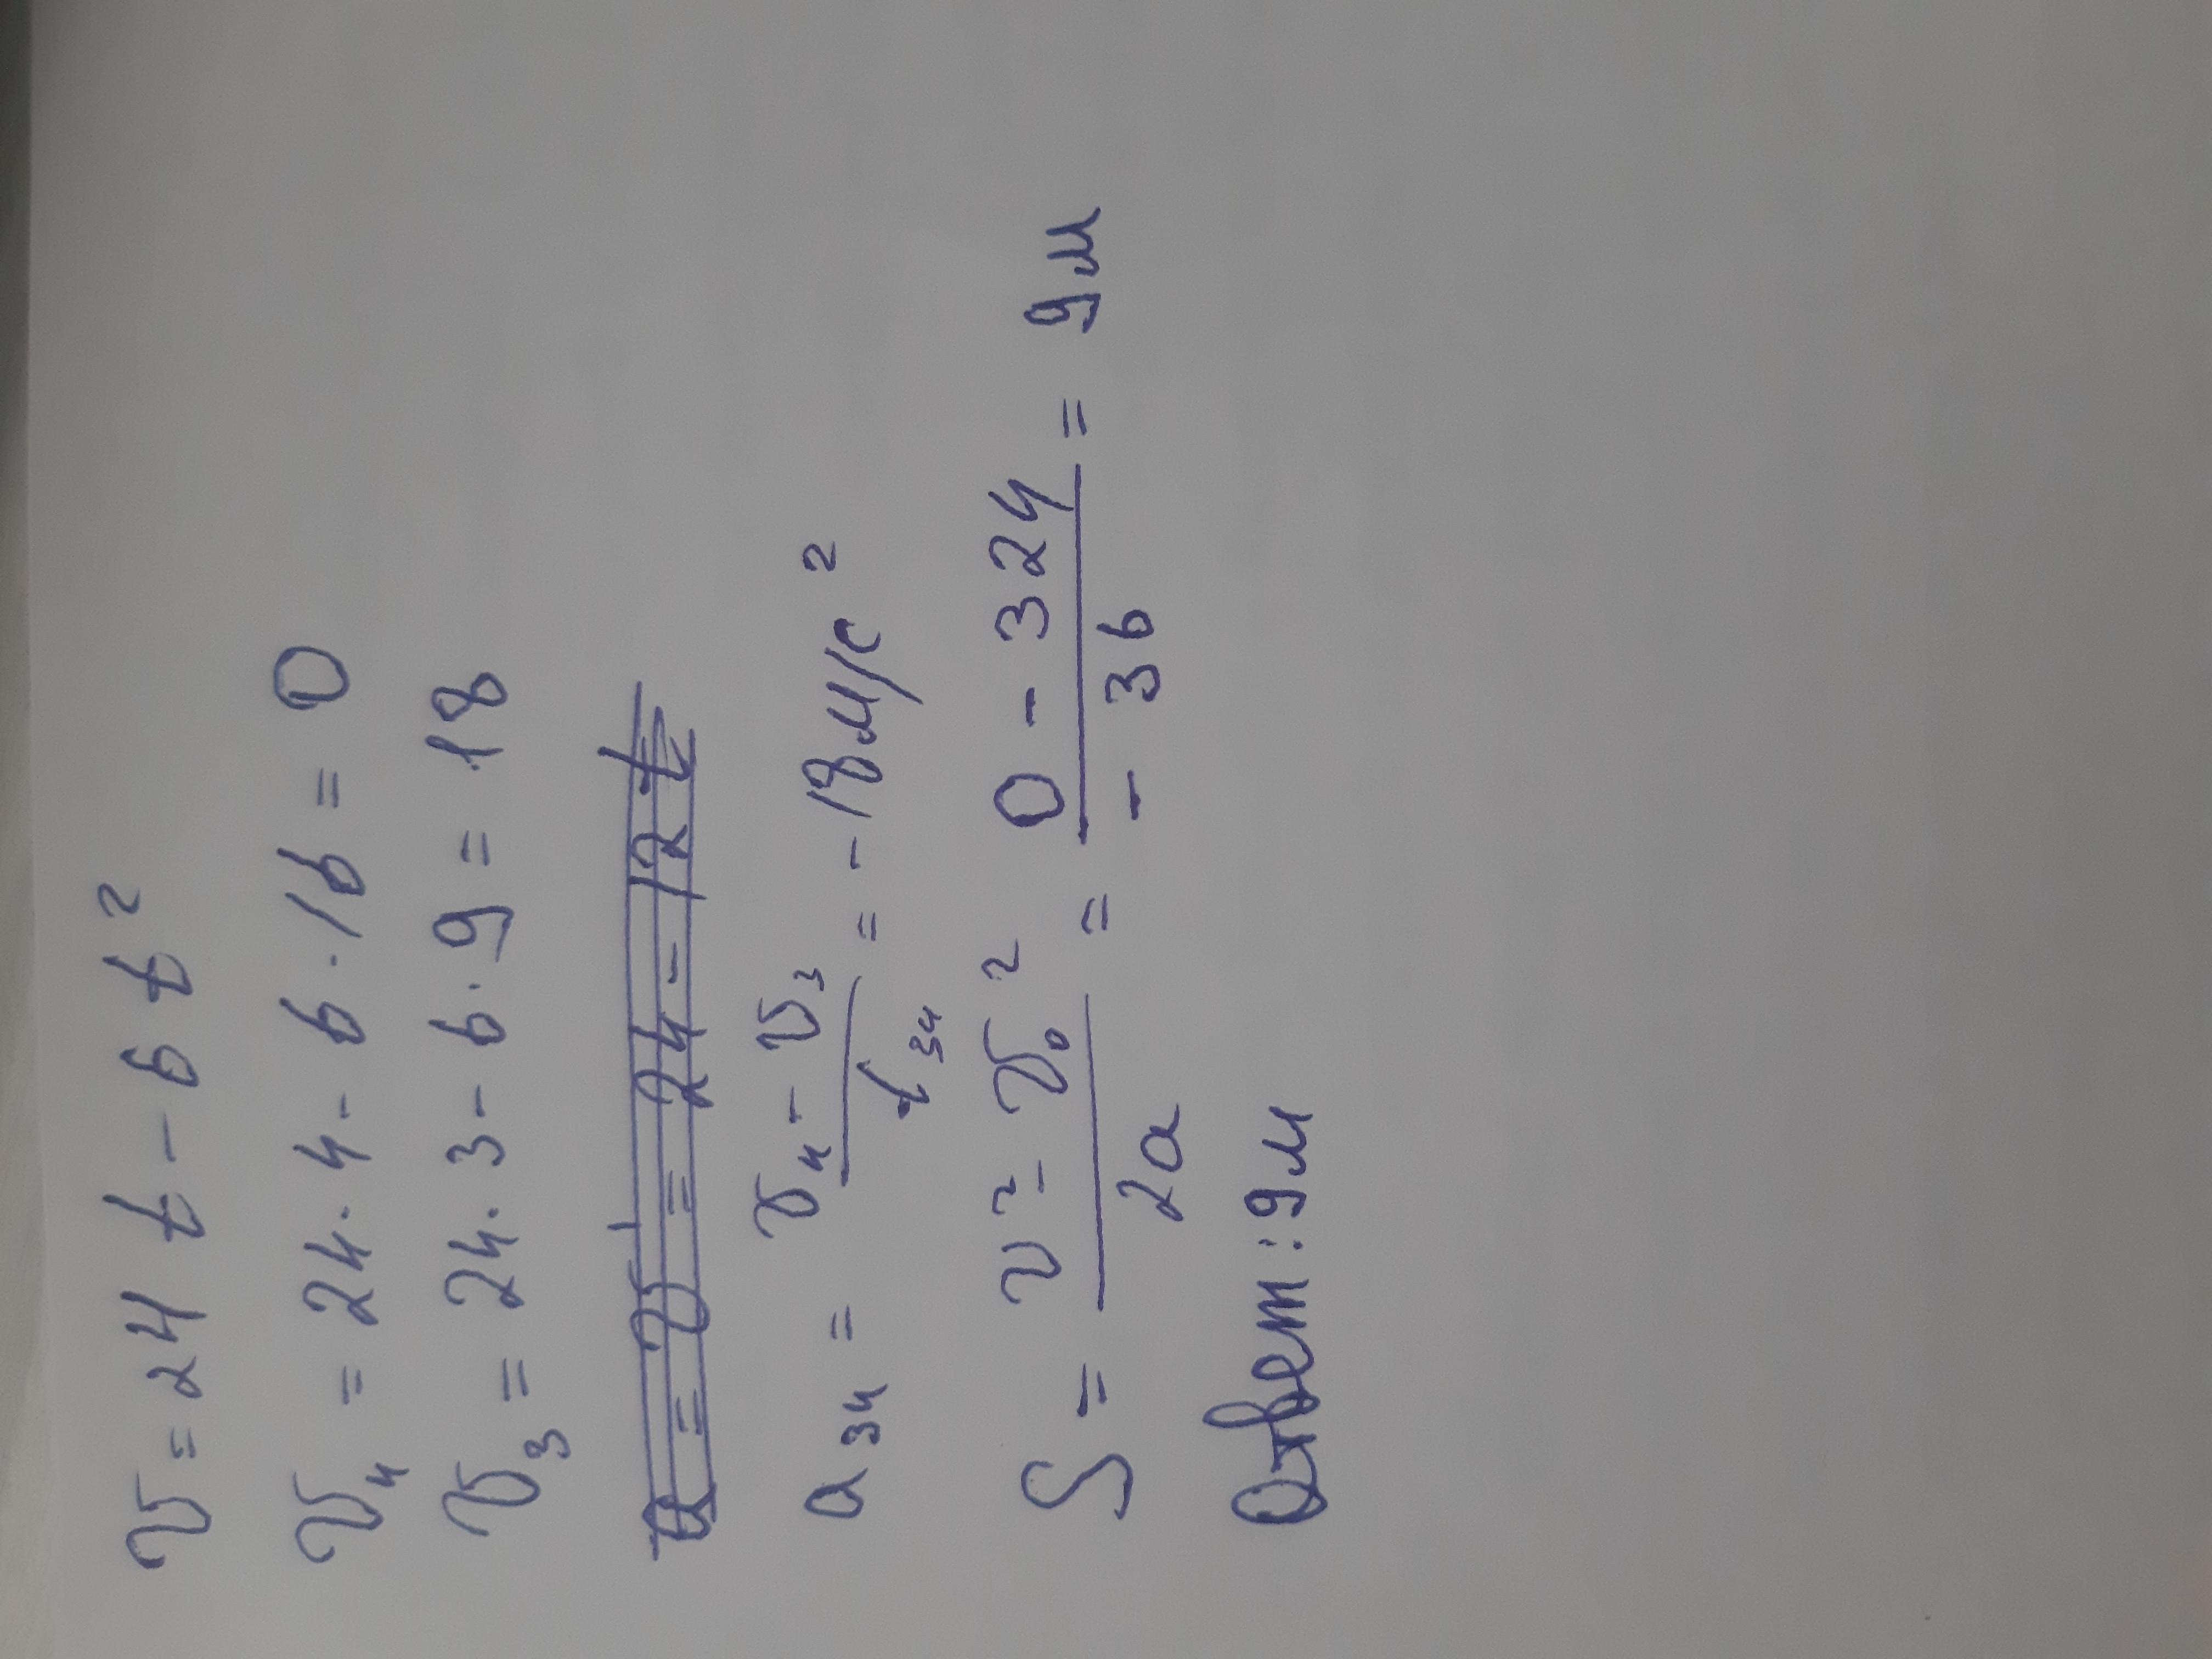 v = 24 t - 6 t²
v₄ = 24 · 4 - 6 · 16 = 0
v₃ = 24 · 3 - 6 · 9 = 18
a = v' = 24 - 12 t
a₃₄ = (v₄ - v₃)/t₃₄ = - 18 м/с²
S = (v² - v₀²)/2a = (0 - 324)/(- 36) = 9 м
Ответ: 9 м